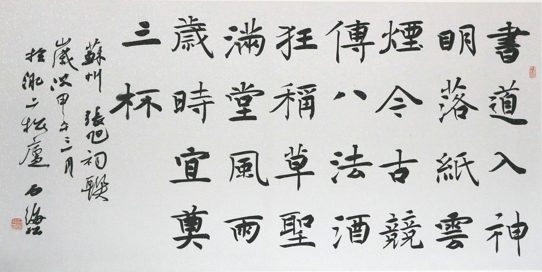 書道入神
明落紙雲
煙今古競
傳八法酒
狂稱草聖
滿堂風雨
歲時宜奠
三杯
蘇州張旭祠聯
歲次甲午三月
於淞上松廬石